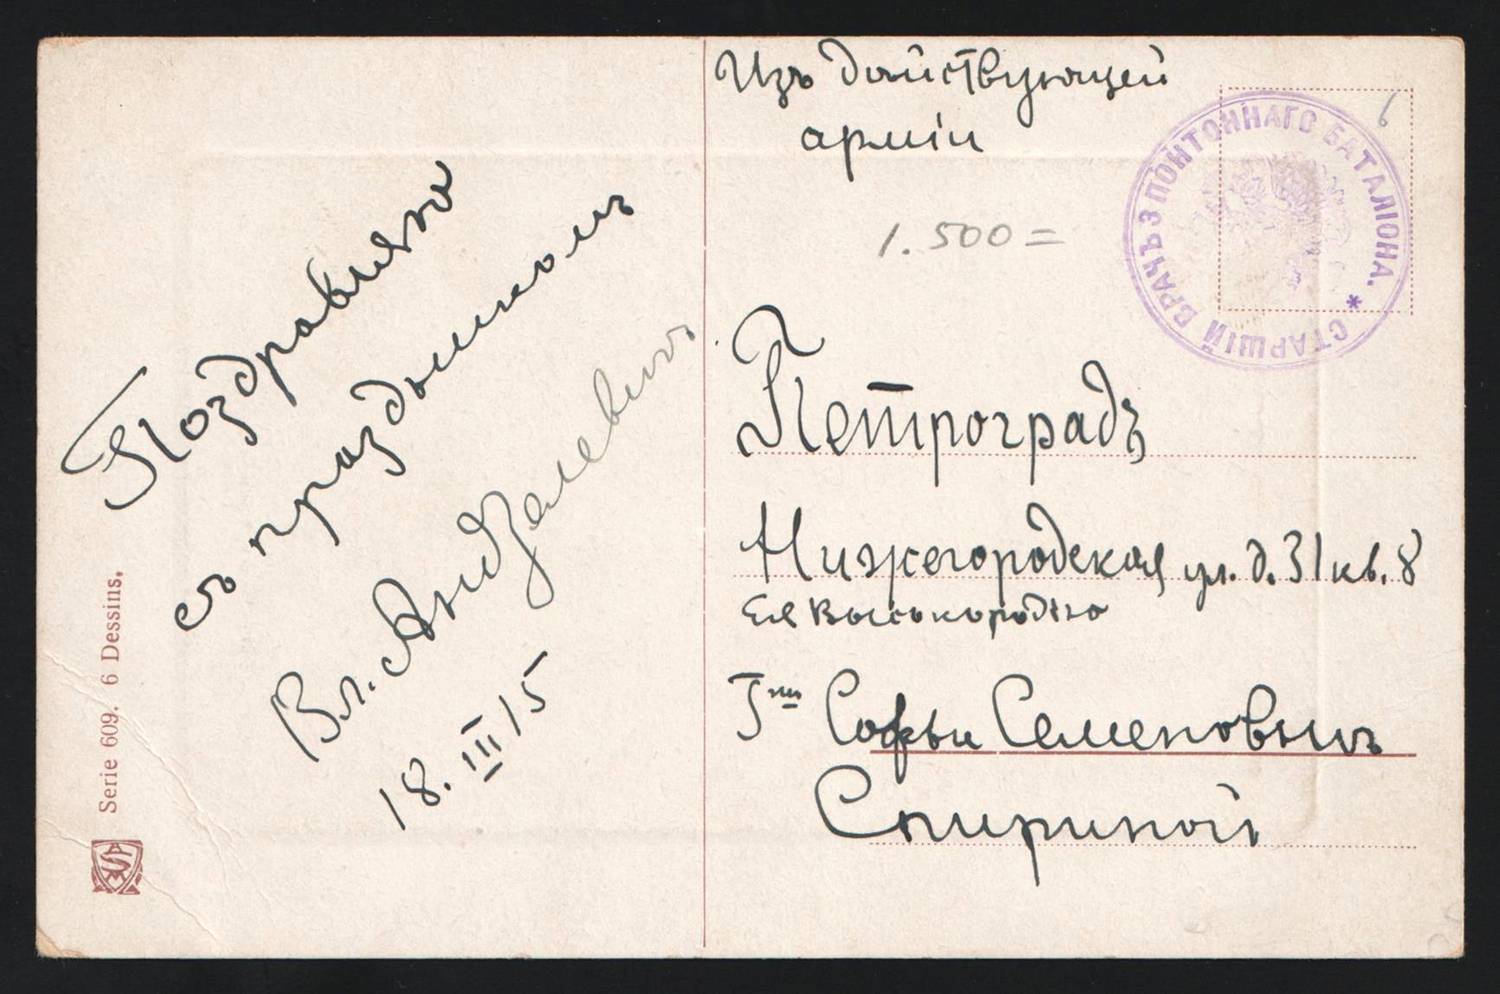 Поздравляю
съ праздникомъ
Вл. Андзалевичъ
18. III 15
Serie 609. 6 Dessins.
Изъ Дѣйствующей
арміи
6
СТАРШІЙ ВРАЧЪ 3 ПОНТОННАГО БАТАЛІОНА. *
1.500=
Петроградъ
Нижегородская ул. д. 31 кв. 8
Ея Высокородію
Г-жѣ Софьи Семеновнѣ
Спириной